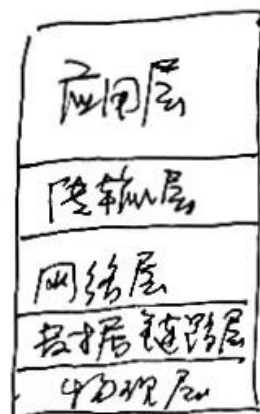 应用层
传输层
网络层
数据链路层
物理层